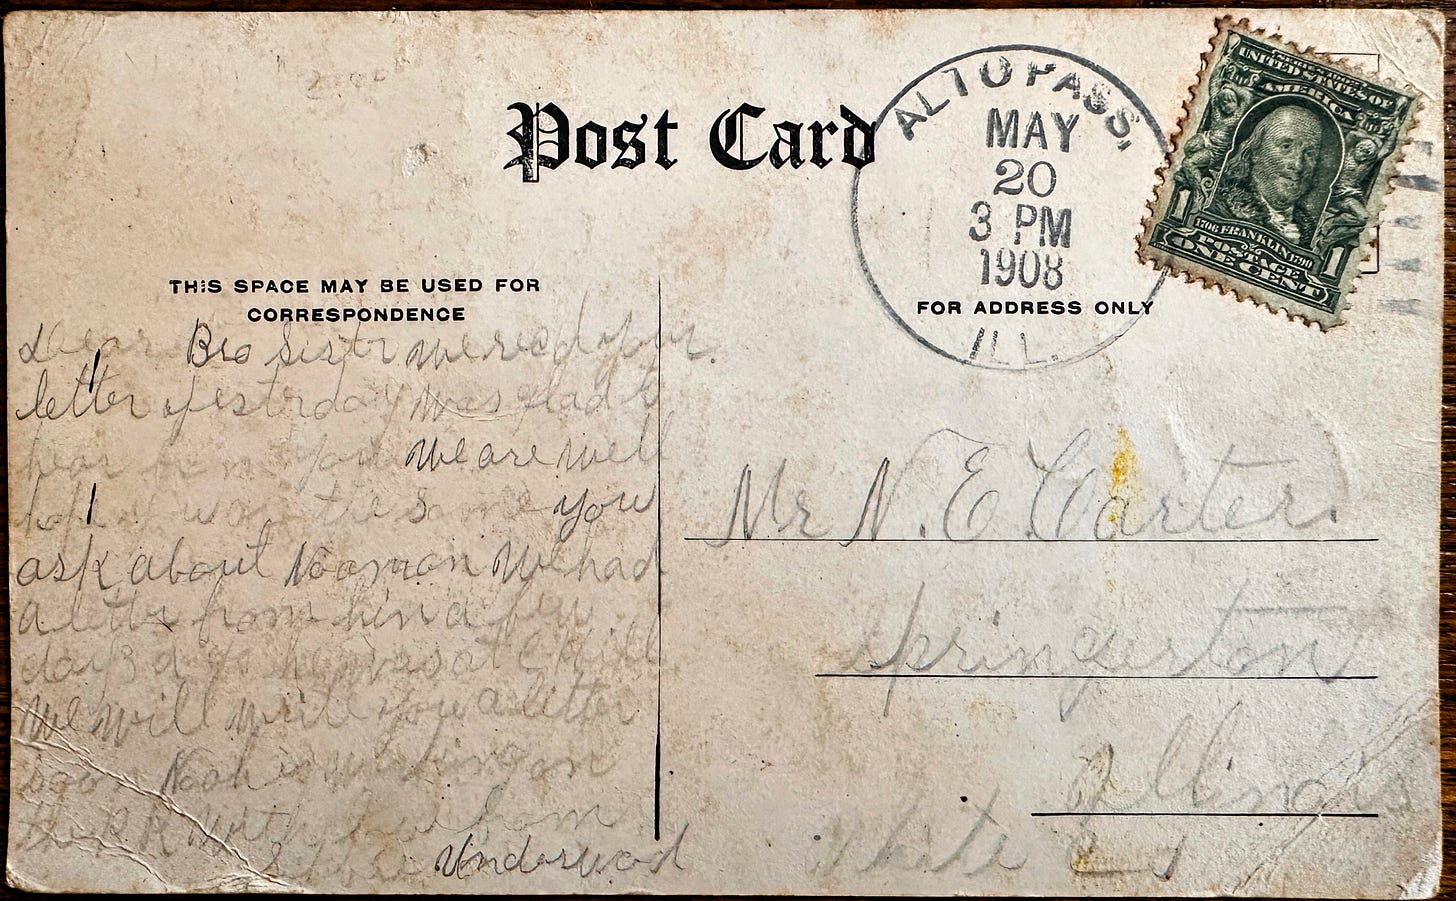 Post Card
ALTO PASS,
MAY
20
3 PM
1908
ILL.
UNITED STATES OF
AMERICA
1706 FRANKLIN 1790
POSTAGE
1 ONE CENT 1
THIS SPACE MAY BE USED FOR
CORRESPONDENCE
FOR ADDRESS ONLY
Dear Bro Sistr we recd your
letter yestrday was glad to
hear from you We are well
hope you the same you
ask about Nooman We had
a letter from him a few
days ago he was at
We will write you a letter
Noah is working on
the RR
Underwood
Mr N. E Carter.
Springerton
Illinois
White Co